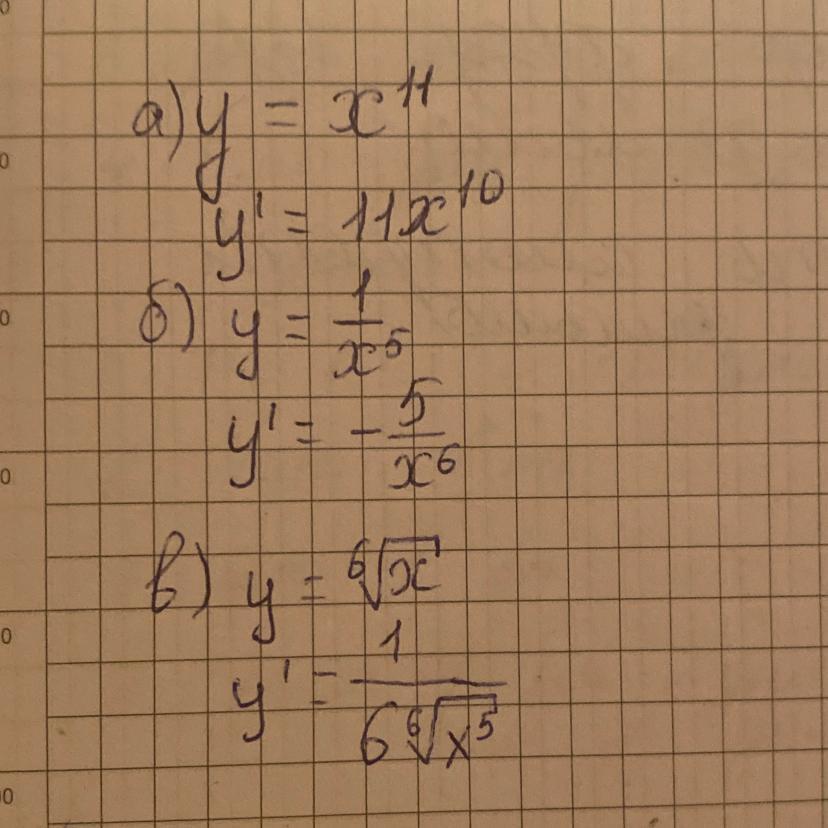 а) y = x¹¹
y' = 11x¹⁰
б) y = 1/x⁵
y' = -5/x⁶
в) y = ⁶√x
y' = 1/(6 ⁶√x⁵)